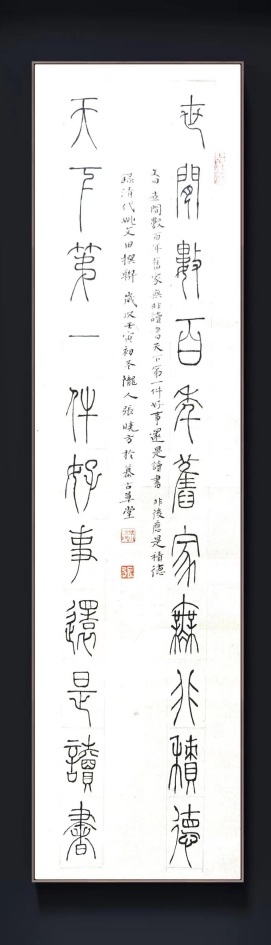 世間數百年舊家無非積德
天下第一件好事還是讀書
文曰世間數百年舊家無非讀書天下第一件好事還是讀書 非後應是積德
錄清代姚文田撰聯 歲次壬寅初冬隴人張曉方於慕古草堂